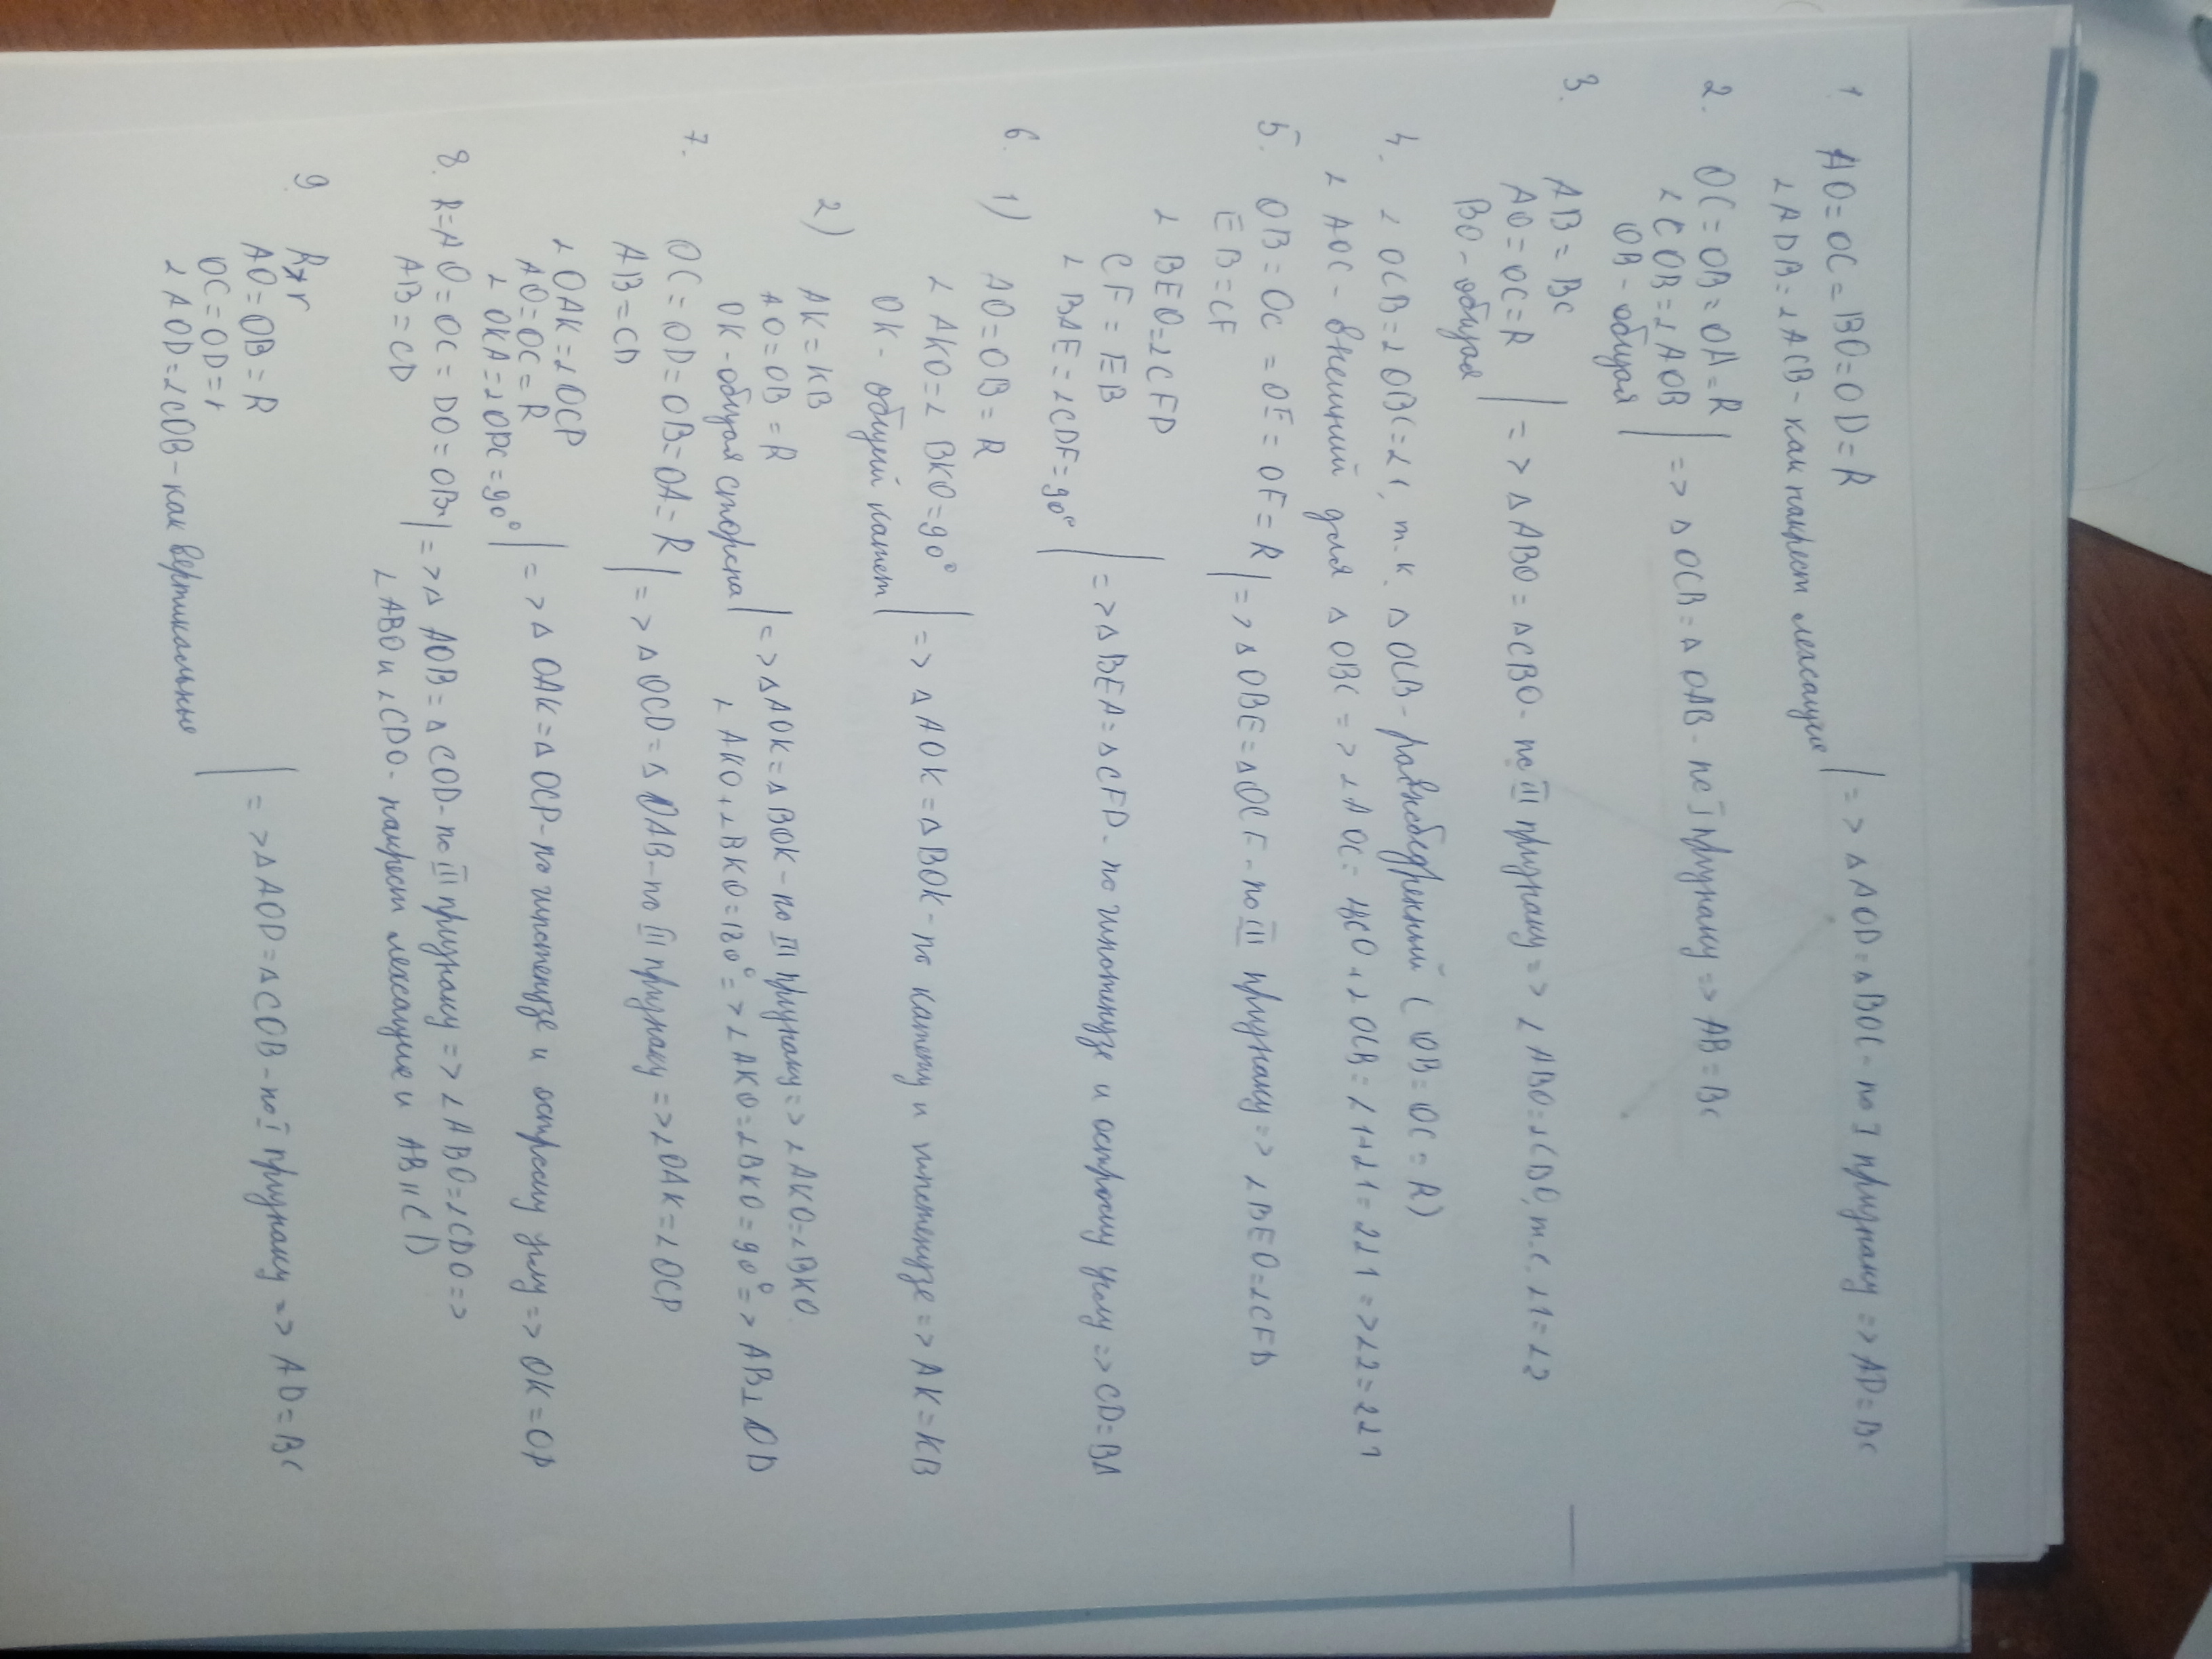 1. AO=OC=BO=OD=R
∠ADB=∠ACB - как накрест лежащие | => △AOD=△BOC - по I признаку => AD=BC
2. OC=OB=OA=R
∠COB=∠AOB | => △OCB=△OAB - по I признаку => AB=BC
OB - общая
3. AB=BC
AO=OC=R | => △ABO=△CBO - по III признаку => ∠ABO=∠CBO, т.е. ∠1=∠2
BO - общая
4. ∠OCB=∠OBC=∠1, т.к. △OCB - равнобедренный (OB=OC=R)
∠AOC - внешний для △OBC => ∠AOC= + ∠OCB=∠1+∠1=2∠1 => ∠2=2∠1
5. OB=OC=OE=OF=R
EB=CF | => △OBE=△OCF - по III признаку => ∠BEO=∠CFD
∠BEO=∠CFD
CF=EB | => △BEA=△CFD - по гипотенузе и острому углу => CD=BA
∠BAE=∠CDF=90°
6. 1) AO=OB=R
∠AKO=∠BKO=90° | => △AOK=△BOK - по катету и гипотенузе => AK=KB
OK - общий катет
2) AK=KB
AO=OB=R | => △AOK=△BOK - по III признаку => ∠AKO=∠BKO
OK - общая сторона ∠AKO+∠BKO=180° => ∠AKO=∠BKO=90° => AB⊥OD
7. OC=OD=OB=OA=R
AB=CD | => △OCD=△OAB - по III признаку => ∠OAK=∠OCP
∠OAK=∠OCP
AO=OC=R | => △OAK=△OCP - по гипотенузе и острому углу => OK=OP
∠OKA=∠OPC=90°
8. R=AO=OC=DO=OB | => △AOB=△COD - по III признаку => ∠ABO=∠CDO =>
AB=CD ∠ABO и ∠CDO - накрест лежащие и AB||CD
9. R r
AO=OB=R
OC=OD=r | => △AOD=△COB - по I признаку => AD=BC
∠AOD=∠COB - как вертикальные